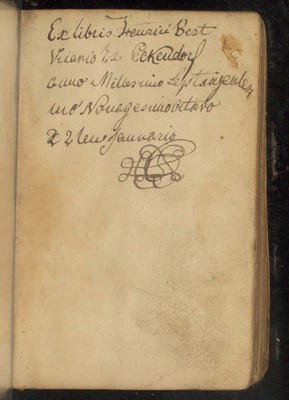 Ex libris Henrici Best
Vicario Zu Eckendorf
anno Millesimo Septingentesi
mo Nonagesimo octavo
d 2 ten Jannario